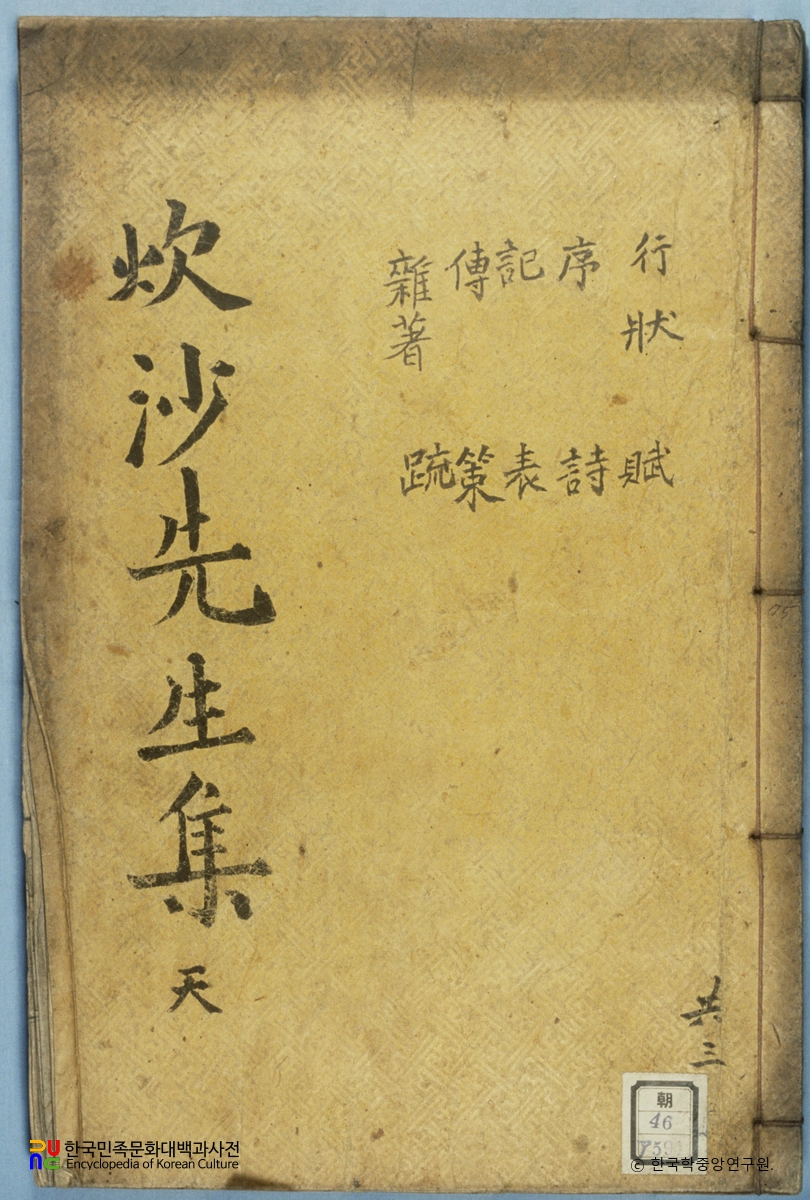 行狀 賦
序 詩
記 表
傳 策
雜著 䟽
炊沙先生集 天
共三
朝
46
한국민족문화대백과사전
Encyclopedia of Korean Culture
© 한국학중앙연구원.